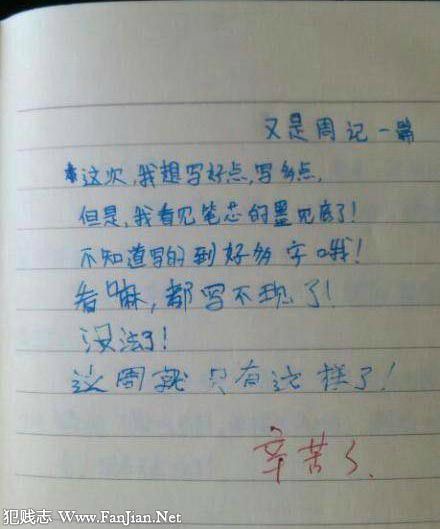 又是周记一篇
这次,我想写好点,写多点,
但是,我看见笔芯的墨见底了!
不知道写的到好多字哦!
看嘛,都写不现了!
没法了!
这周就只有这样了!
辛苦了.
犯贱志 Www.FanJian.Net